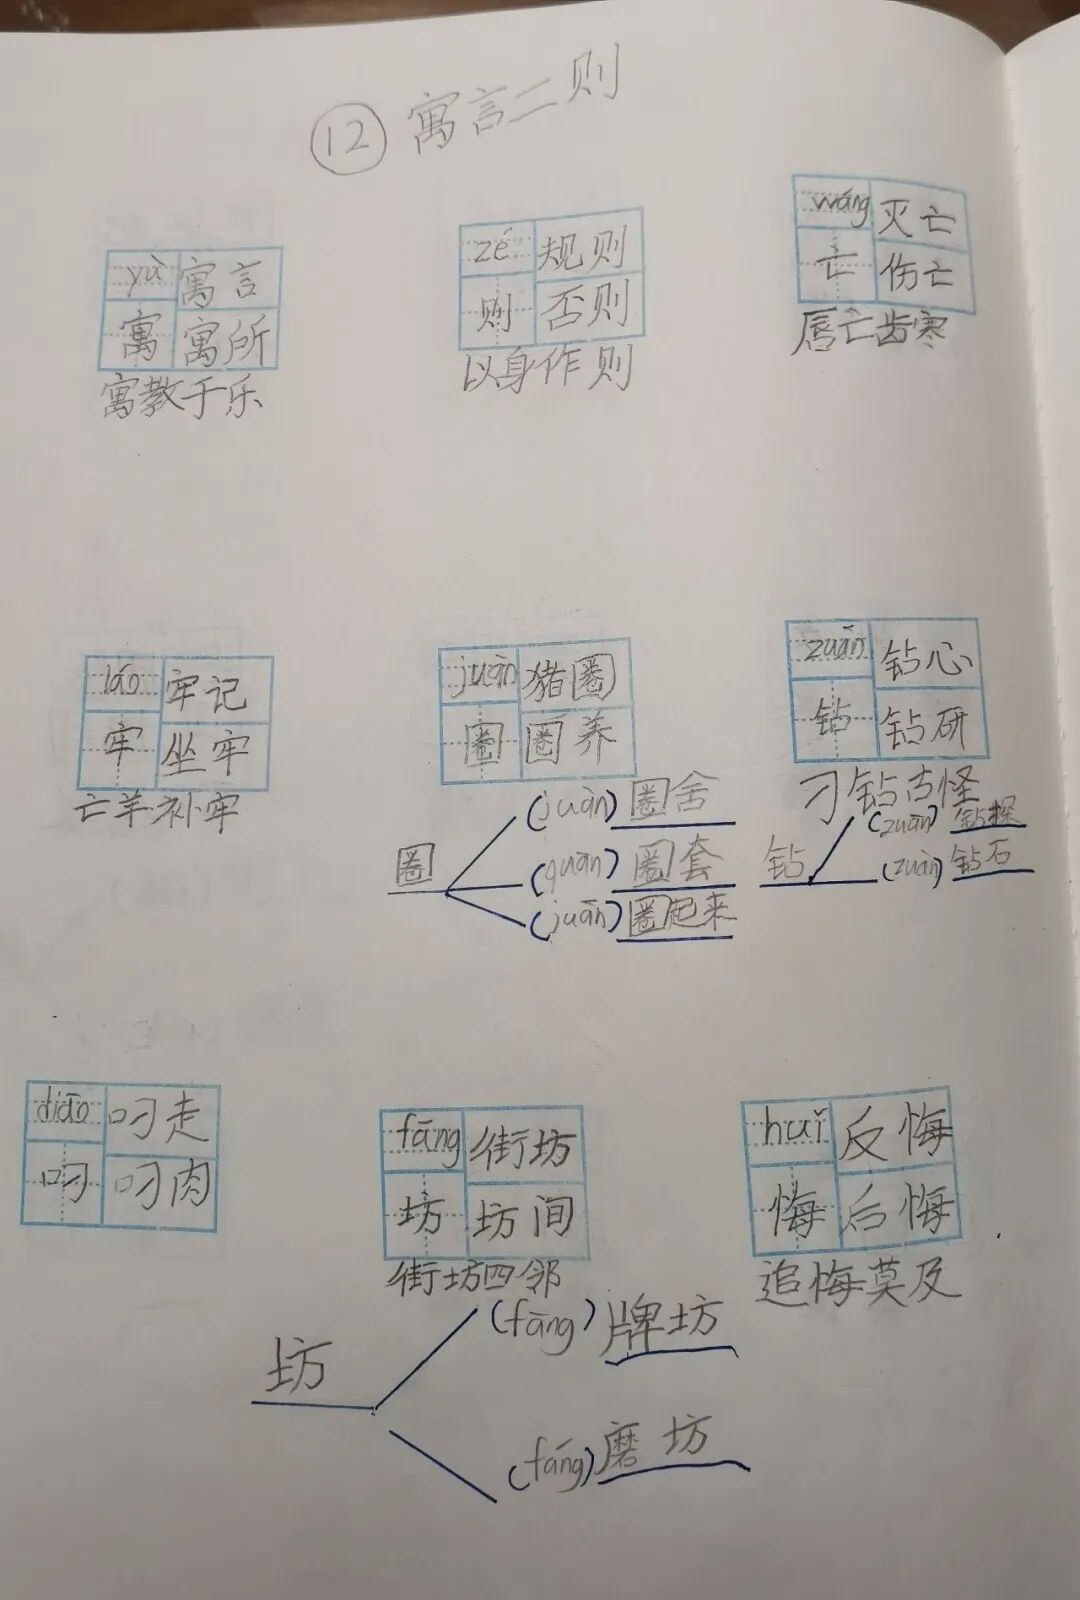 12 寓言二则
yù 寓言
寓 寓所
寓教于乐
zé 规则
则 否则
以身作则
wáng 灭亡
亡 伤亡
唇亡齿寒
láo 牢记
牢 坐牢
亡羊补牢
juàn 猪圈
圈 圈养
圈
(juàn) 圈舍
(quān) 圈套
(juān) 圈起来
zuān 钻心
钻 钻研
刁钻古怪
钻
(zuān) 钻探
(zuàn) 钻石
diāo 叼走
叼 叼肉
fāng 街坊
坊 坊间
街坊四邻
坊
(fāng) 牌坊
(fáng) 磨坊
huǐ 反悔
悔 后悔
追悔莫及